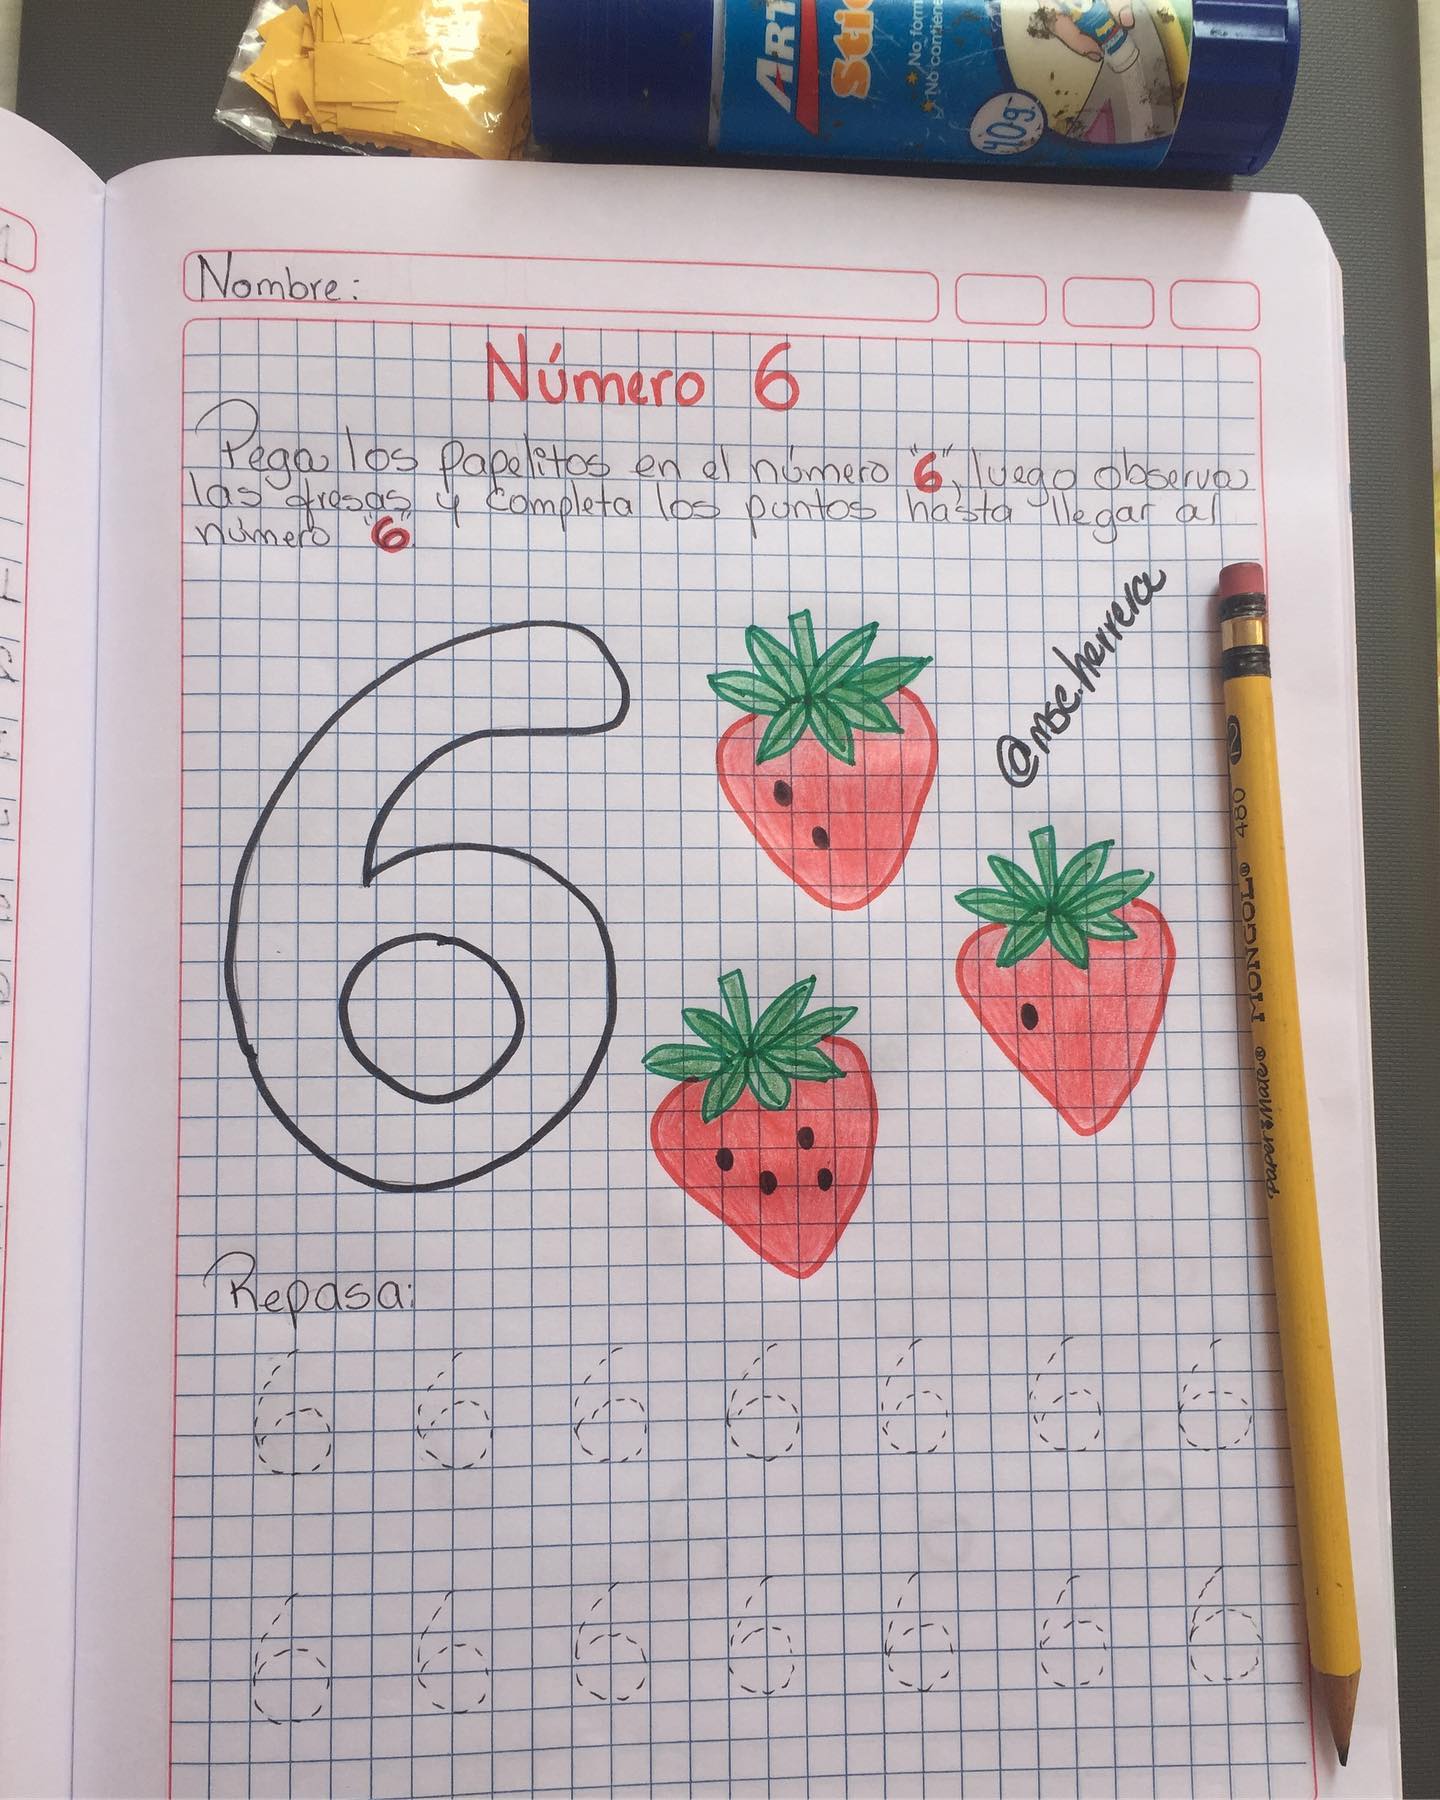 ART
Stic
No form
No contiene
40g.
Nombre:
Número 6
Pega los papelitos en el número "6", luego observa
las fresas y completa los puntos hasta llegar al
número "6"
@msc.herrera
6
PaperMate® MONGOL® 480 2
Repasa:
6 6 6 6 6 6 6
6 6 6 6 6 6 6